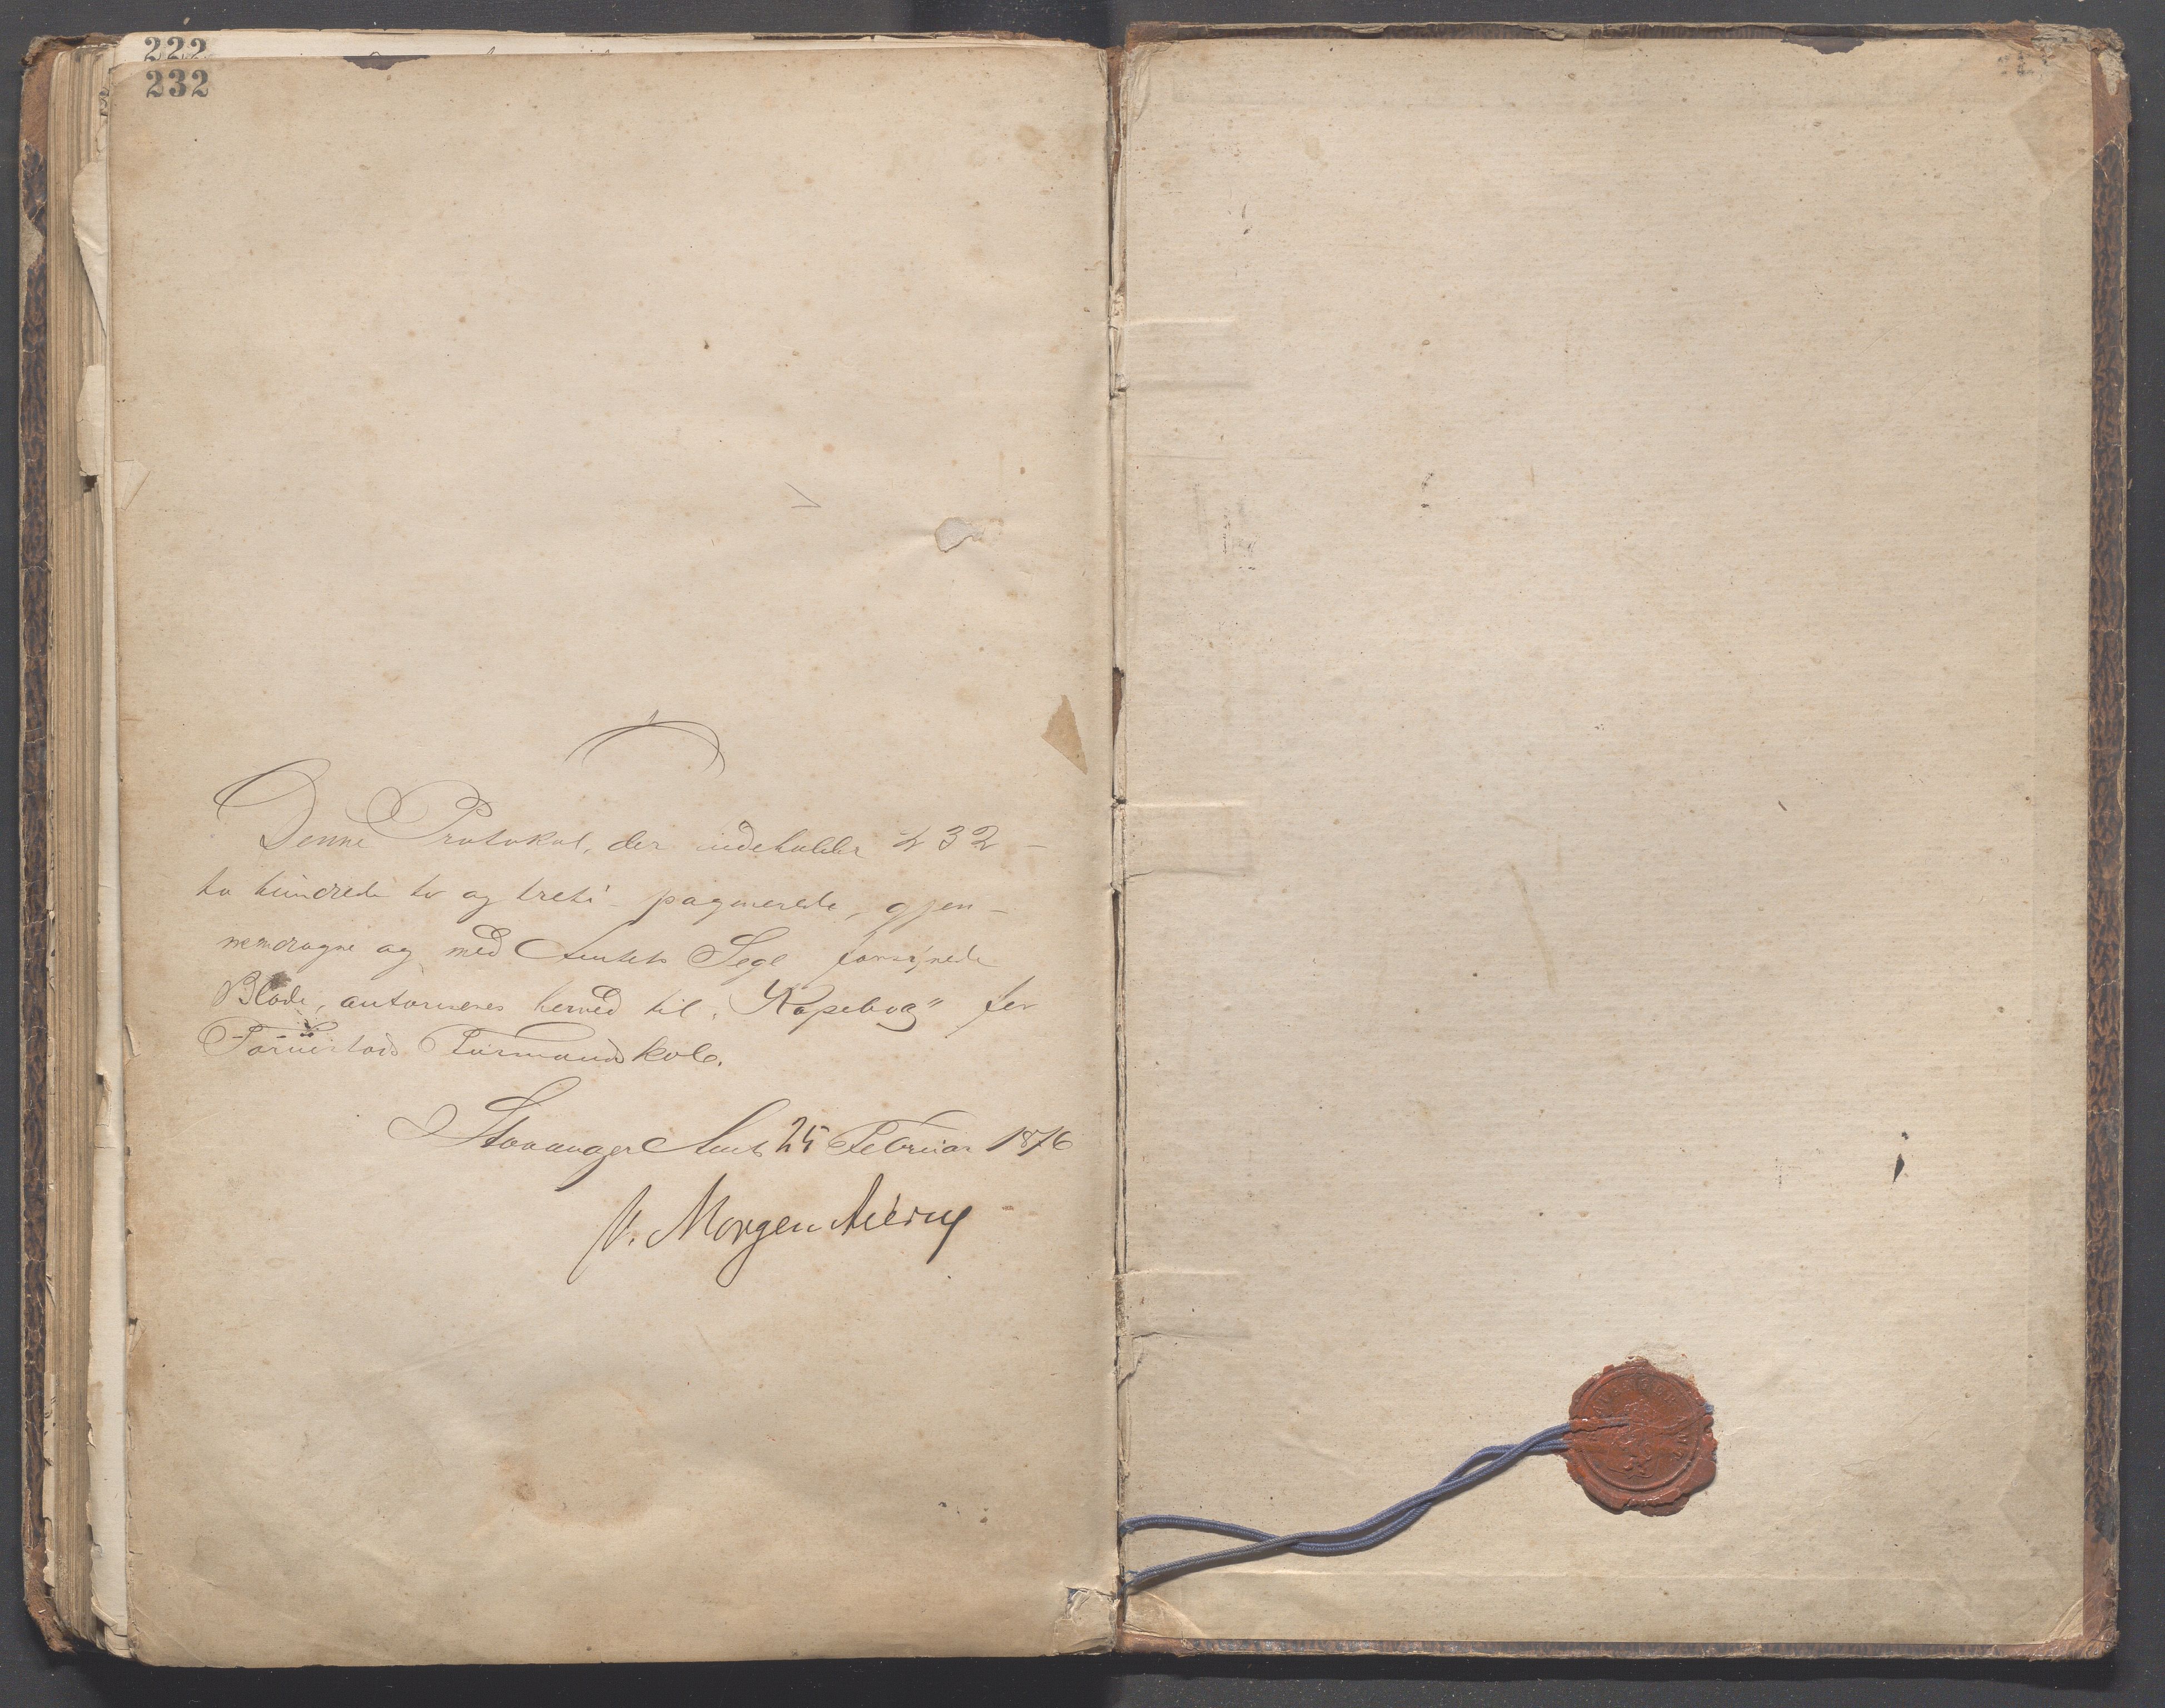 222
232
Denne Protokol, der indeholder 232 -
to hundrede to og treti - paginerede, gjen-
nemdragne og med Amtets Segl forsynede
Blade, autoriseres herved til "Kopebog" for
Torvestads Formandskab.
Stavanger Amt 25 Februar 1876
V. Morgenstierne